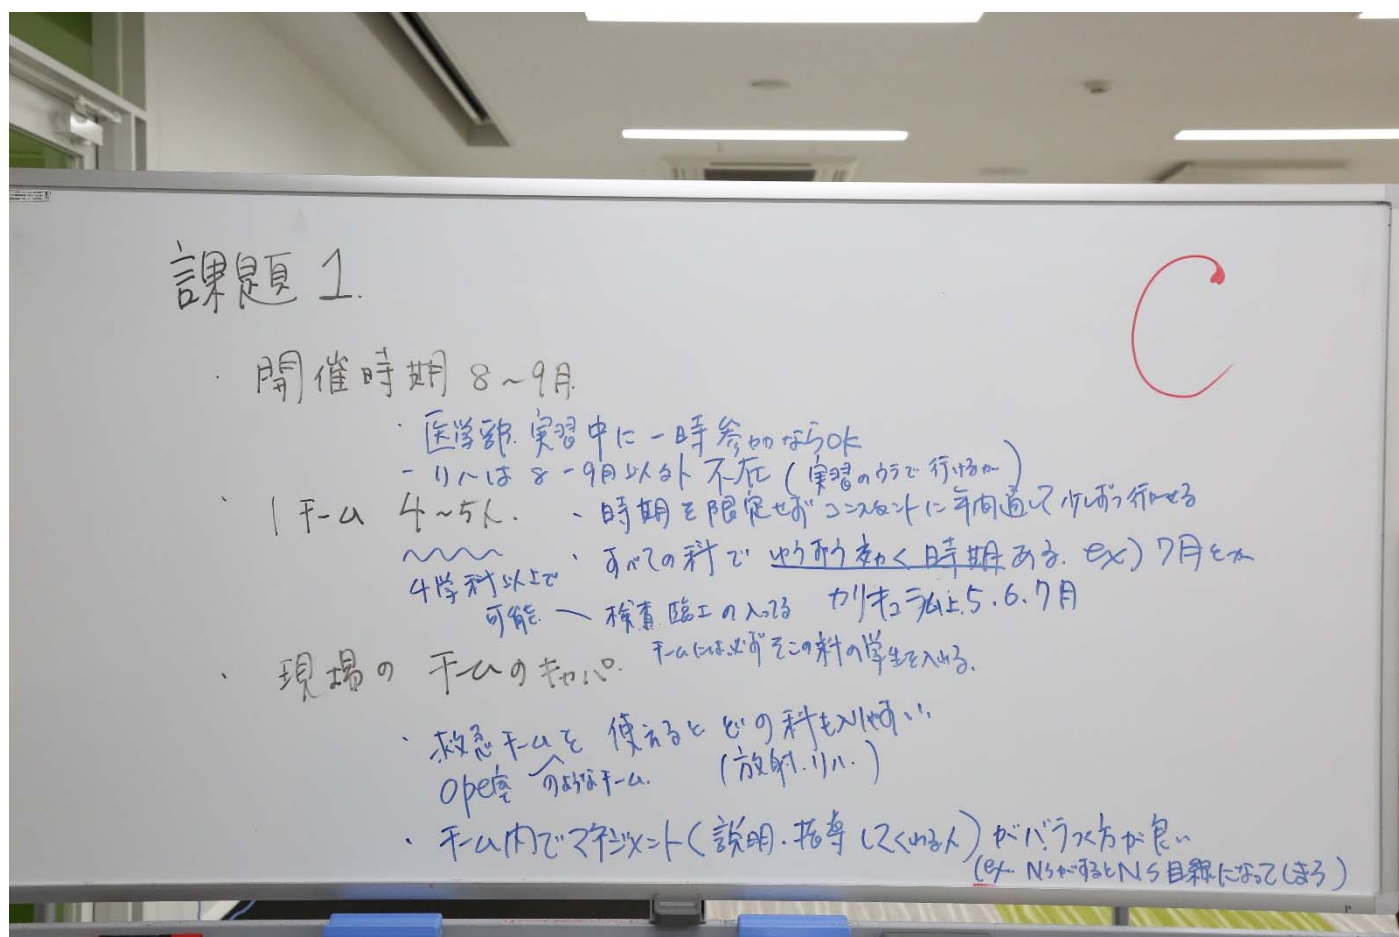 課題 1.
C
・開催時期 8〜9月
・医学部 実習中に一時参加ならOK
- リハは 8-9月以外 不在(実習のウラで行けるか)
・1チーム 4〜5人.
・時期を限定せずコンスタントに年間通して少しずつ行かせる
4学科以上で可能
・すべての科で ゆうずう効く時期ある. ex) 7月とか
検査 臨工の入ってる
カリキュラム上 5.6.7月
チームには必ずそこの科の学生を入れる.
・現場の チームのキャパ.
・救急チームを 使えると どの科も入りやすい.
ope室 のようなチーム. (放射.リハ.)
・チーム内でマネジメント(説明.指導してくれる人)がバラつく方が良い
(ex. NSがするとNS目線になってしまう)